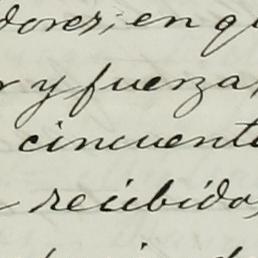 dores; en qu
r y fuerza,
cincuenta
recibido,